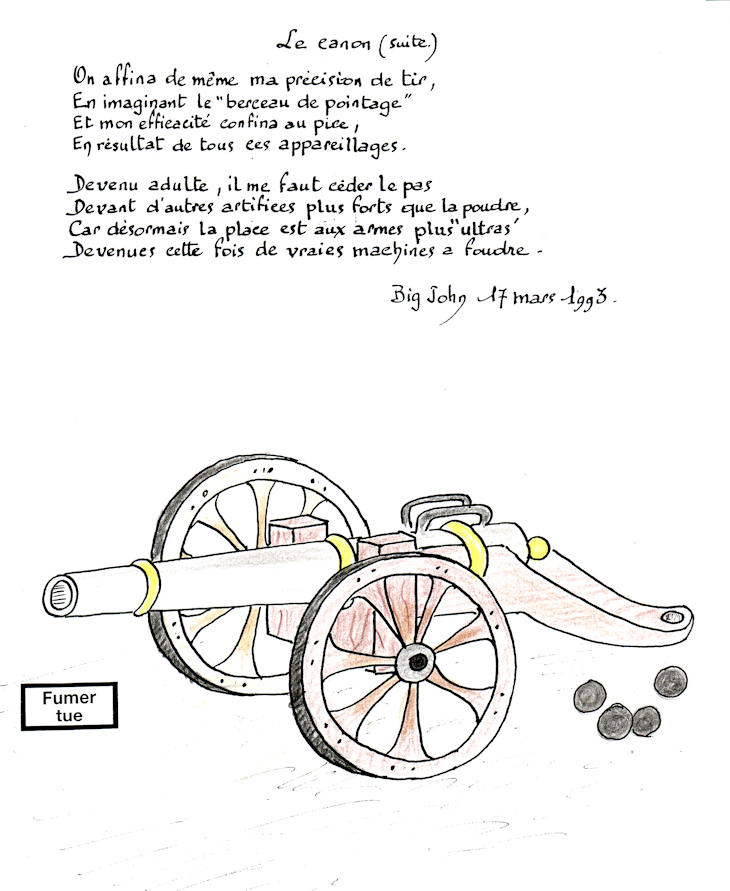 Le canon (suite.)
On affina de même ma précision de tir,
En imaginant le "berceau de pointage"
Et mon efficacité confina au pire,
En résultat de tous ces appareillages.
Devenu adulte, il me faut céder le pas
Devant d'autres artifices plus forts que la poudre,
Car désormais la place est aux armes plus "ultras"
Devenues cette fois de vraies machines a foudre.
Big John 17 mars 1993.
Fumer
tue